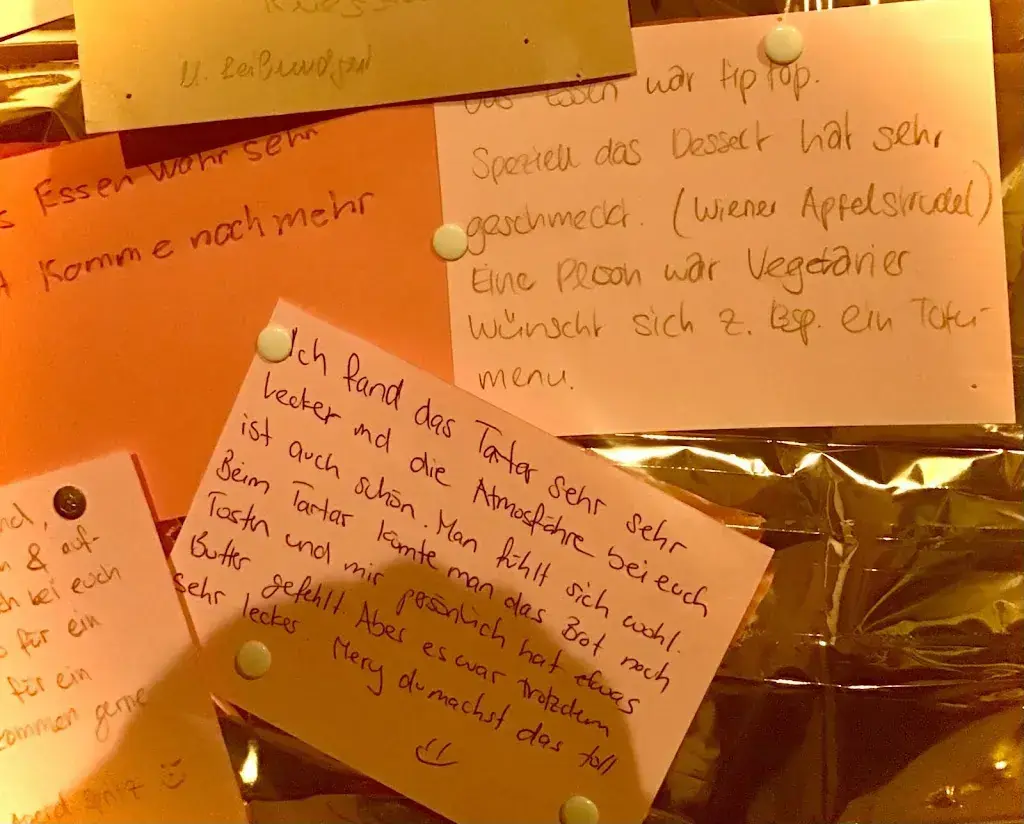 u. Leib und gut
Das Essen war tip top.
Speziell das Dessert hat sehr
geschmeckt. (Wiener Apfelstrudel)
Eine Person war Vegetarier
wünscht sich z. Bsp. ein Tofu-
menu.
s Essen wahr sehr
Komme noch mehr
Ich fand das Tartar sehr sehr
lecker und die Atmosfähre bei euch
ist auch schön. Man fühlt sich wohl.
Beim Tartar könnte man das Brot noch
Tostn und mir persönlich hat etwas
Butter gefehlt. Aber es war trotzdem
sehr lecker. Mery du machst das toll
& auf-
ch bei euch
für ein
für ein
kommen gerne